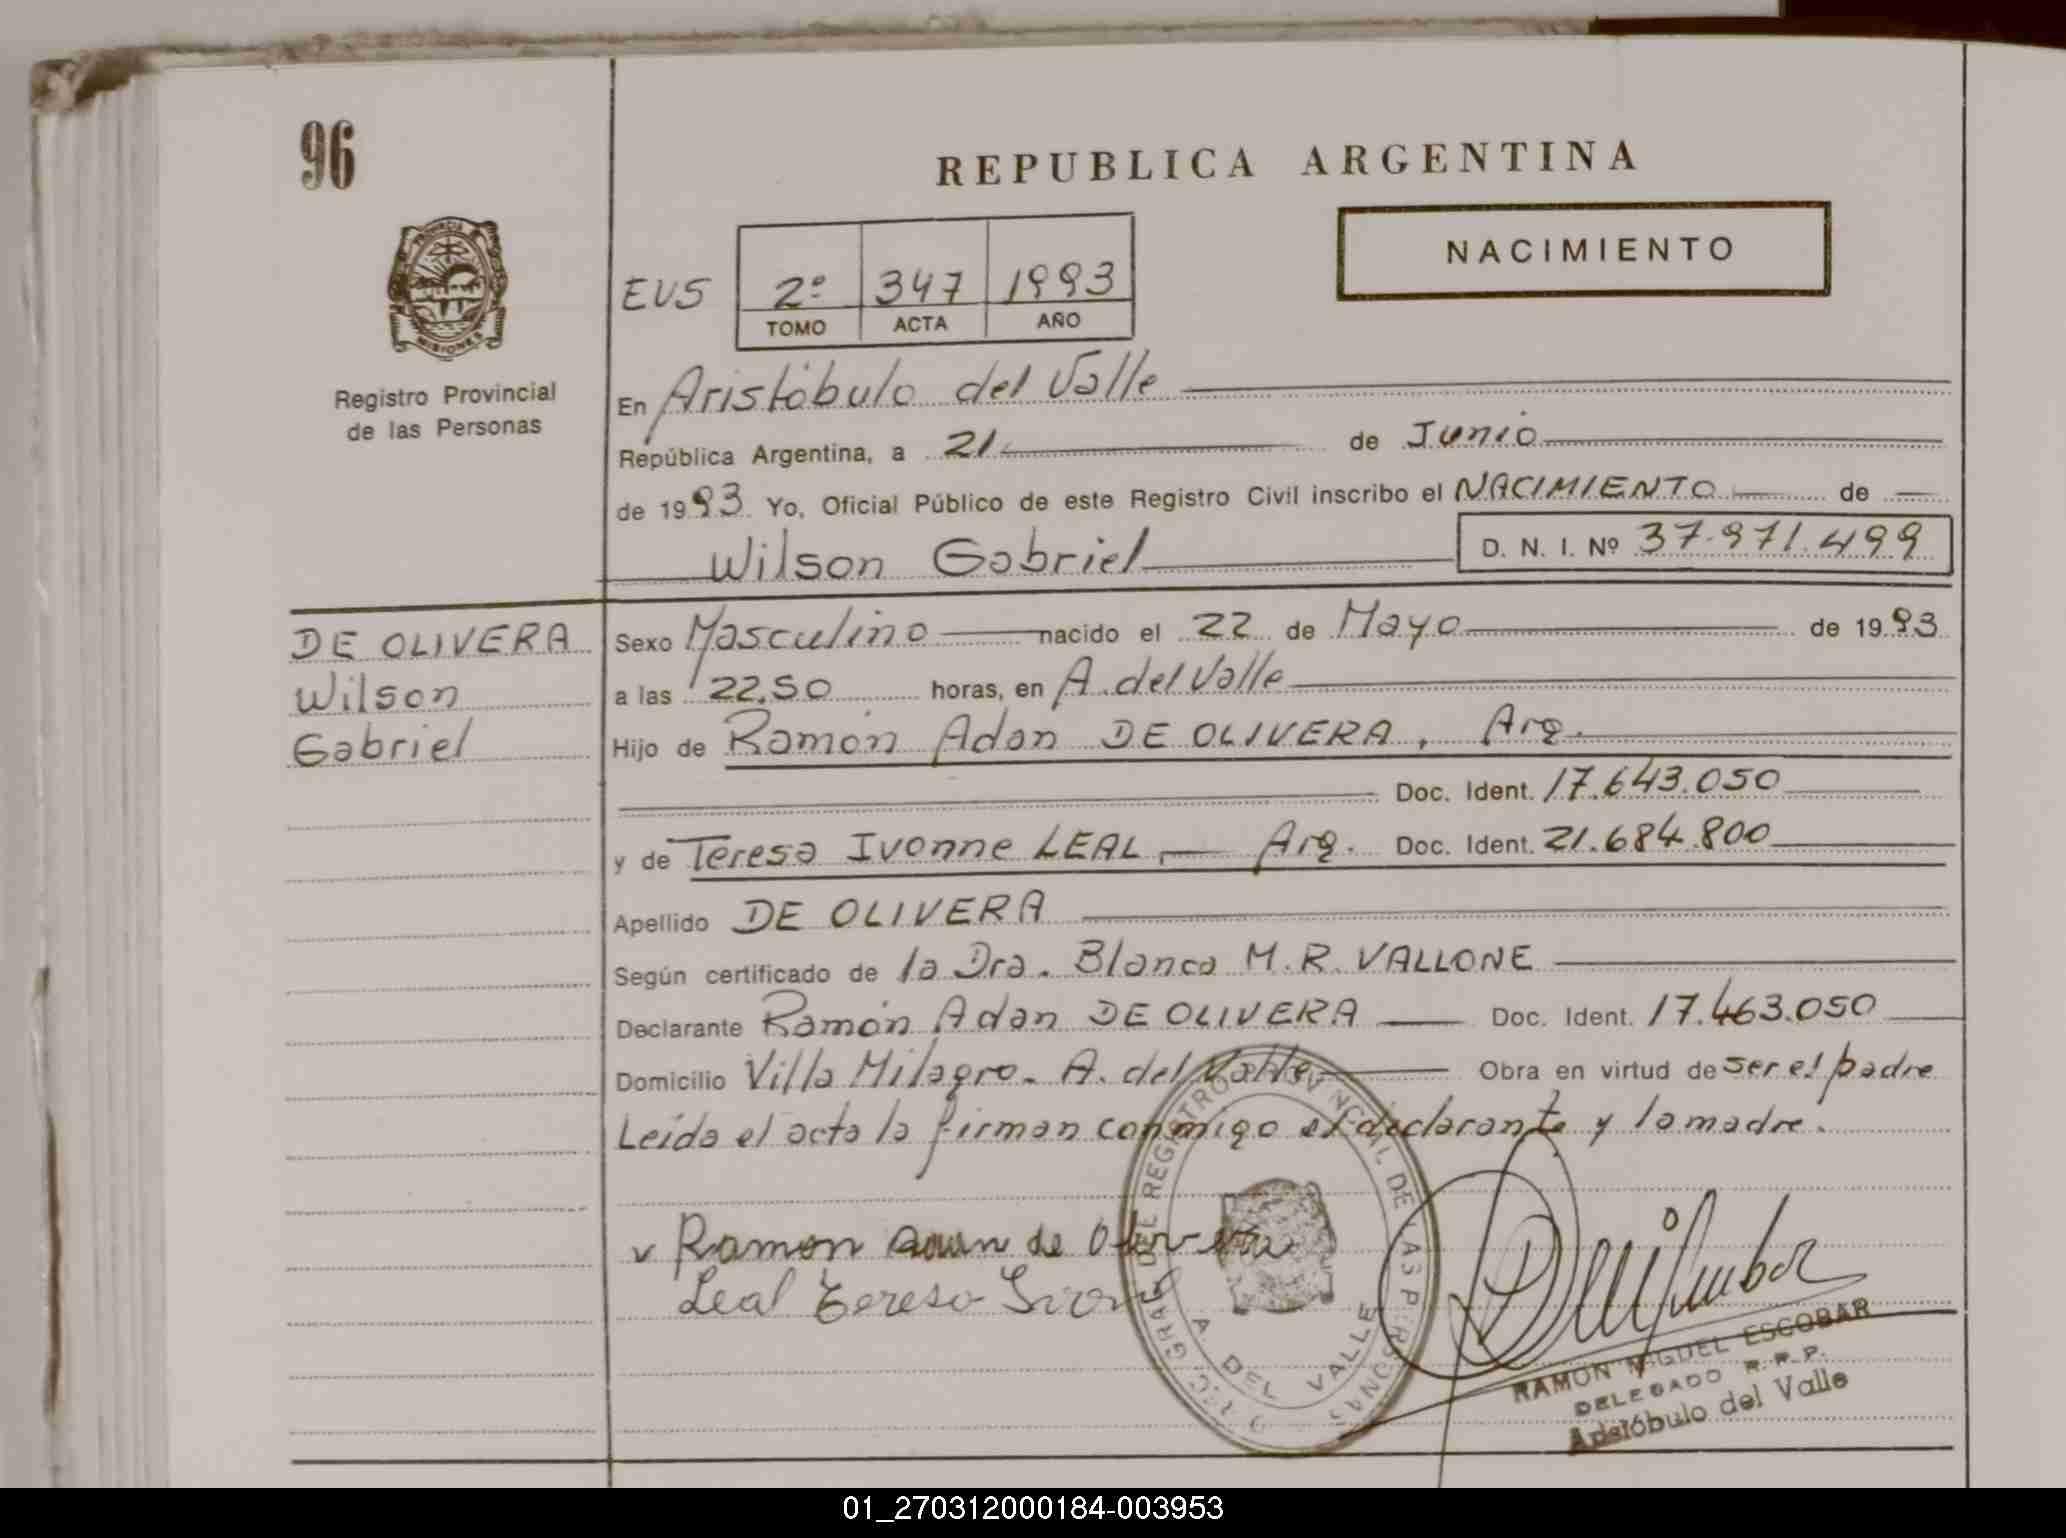 96
REPUBLICA ARGENTINA
NACIMIENTO
EUS 2º 347 1993
TOMO ACTA AÑO
PROVINCIA DE
MISIONES
Registro Provincial
de las Personas
En Aristóbulo del Valle
República Argentina, a 21 de Junio
de 1993 Yo, Oficial Público de este Registro Civil inscribo el NACIMIENTO de
Wilson Gabriel D. N. I. Nº 37.971.499
DE OLIVERA
Wilson
Gabriel
Sexo Masculino nacido el 22 de Mayo de 1993
a las 22.50 horas, en A. del Valle
Hijo de Ramón Adan DE OLIVERA, Arg.
Doc. Ident. 17.643.050
y de Teresa Ivonne LEAL, Arg. Doc. Ident. 21.684.800
Apellido DE OLIVERA
Según certificado de la Dra. Blanca M.R. VALLONE
Declarante Ramón Adan DE OLIVERA Doc. Ident. 17.463.050
Domicilio Villa Milagro. A. del Valle Obra en virtud de ser el padre
Leida el acta la firman conmigo el declarante y la madre.
Ramon de
Leal Teresa
DEL REGISTRO PROVINCIAL DE LAS PERSONAS
A. DEL VALLE
RAMON MIGUEL ESCOBAR
DELEGADO R.P.P.
Aristóbulo del Valle
01_270312000184-003953